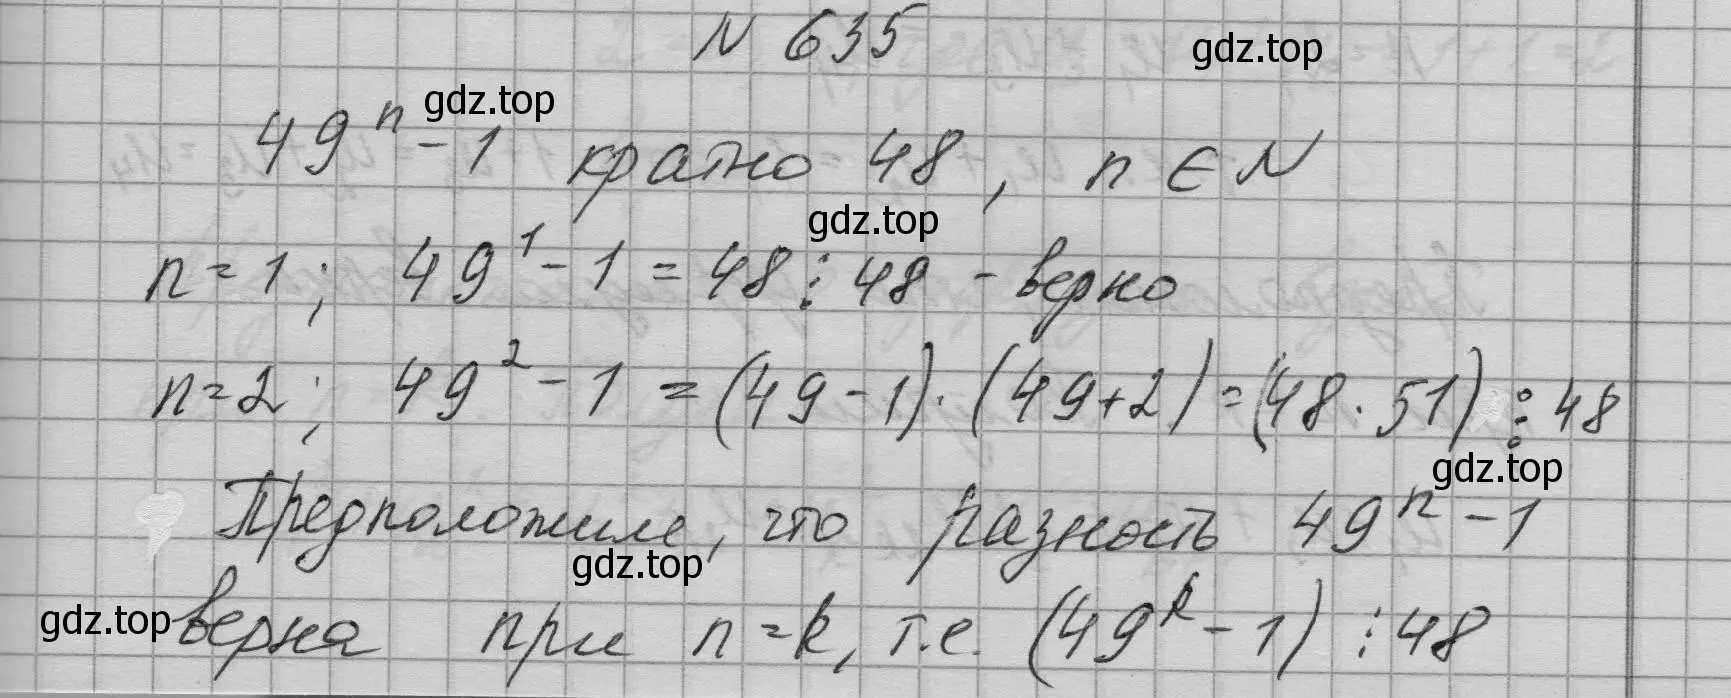 N 635
gdz.top
gdz.top
49ⁿ - 1 кратно 48, n ∈ N
gdz.top
n = 1; 49¹ - 1 = 48 ⋮ 48 - верно
n = 2; 49² - 1 = (49 - 1) · (49 + 2) = (48 · 51) ⋮ 48
gdz.top
Предположим, что разность 49ⁿ - 1
gdz.top
gdz.top
верна при n = k, т.е. (49ᵏ - 1) ⋮ 48